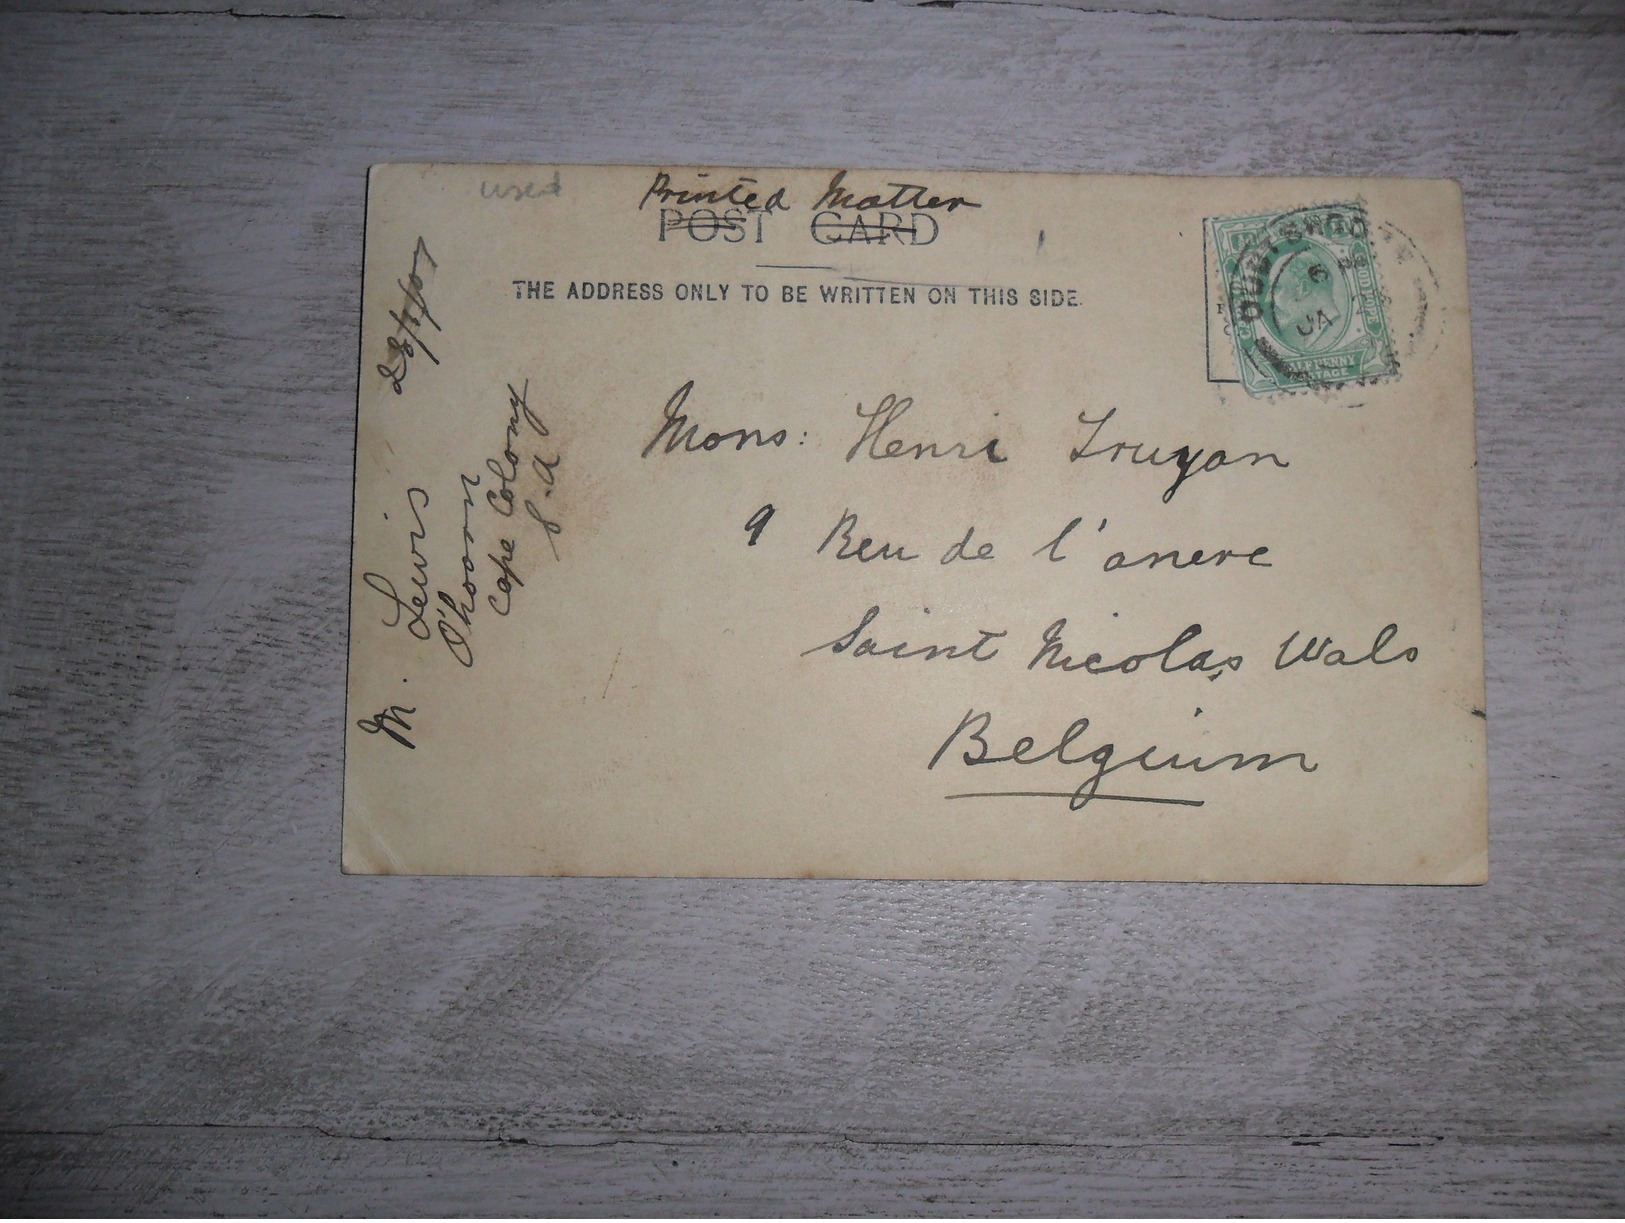 used
Printed Matter
POST CARD
THE ADDRESS ONLY TO BE WRITTEN ON THIS SIDE.
OUDTSHOO
JA
HALFPENNY
POSTAGE
Mons: Henri Truyan
9 Reu de l'anere
Saint Nicolas Wals
Belgium
M. Lewis 28/1/07
O'hoorn
Cape Colony
S.A